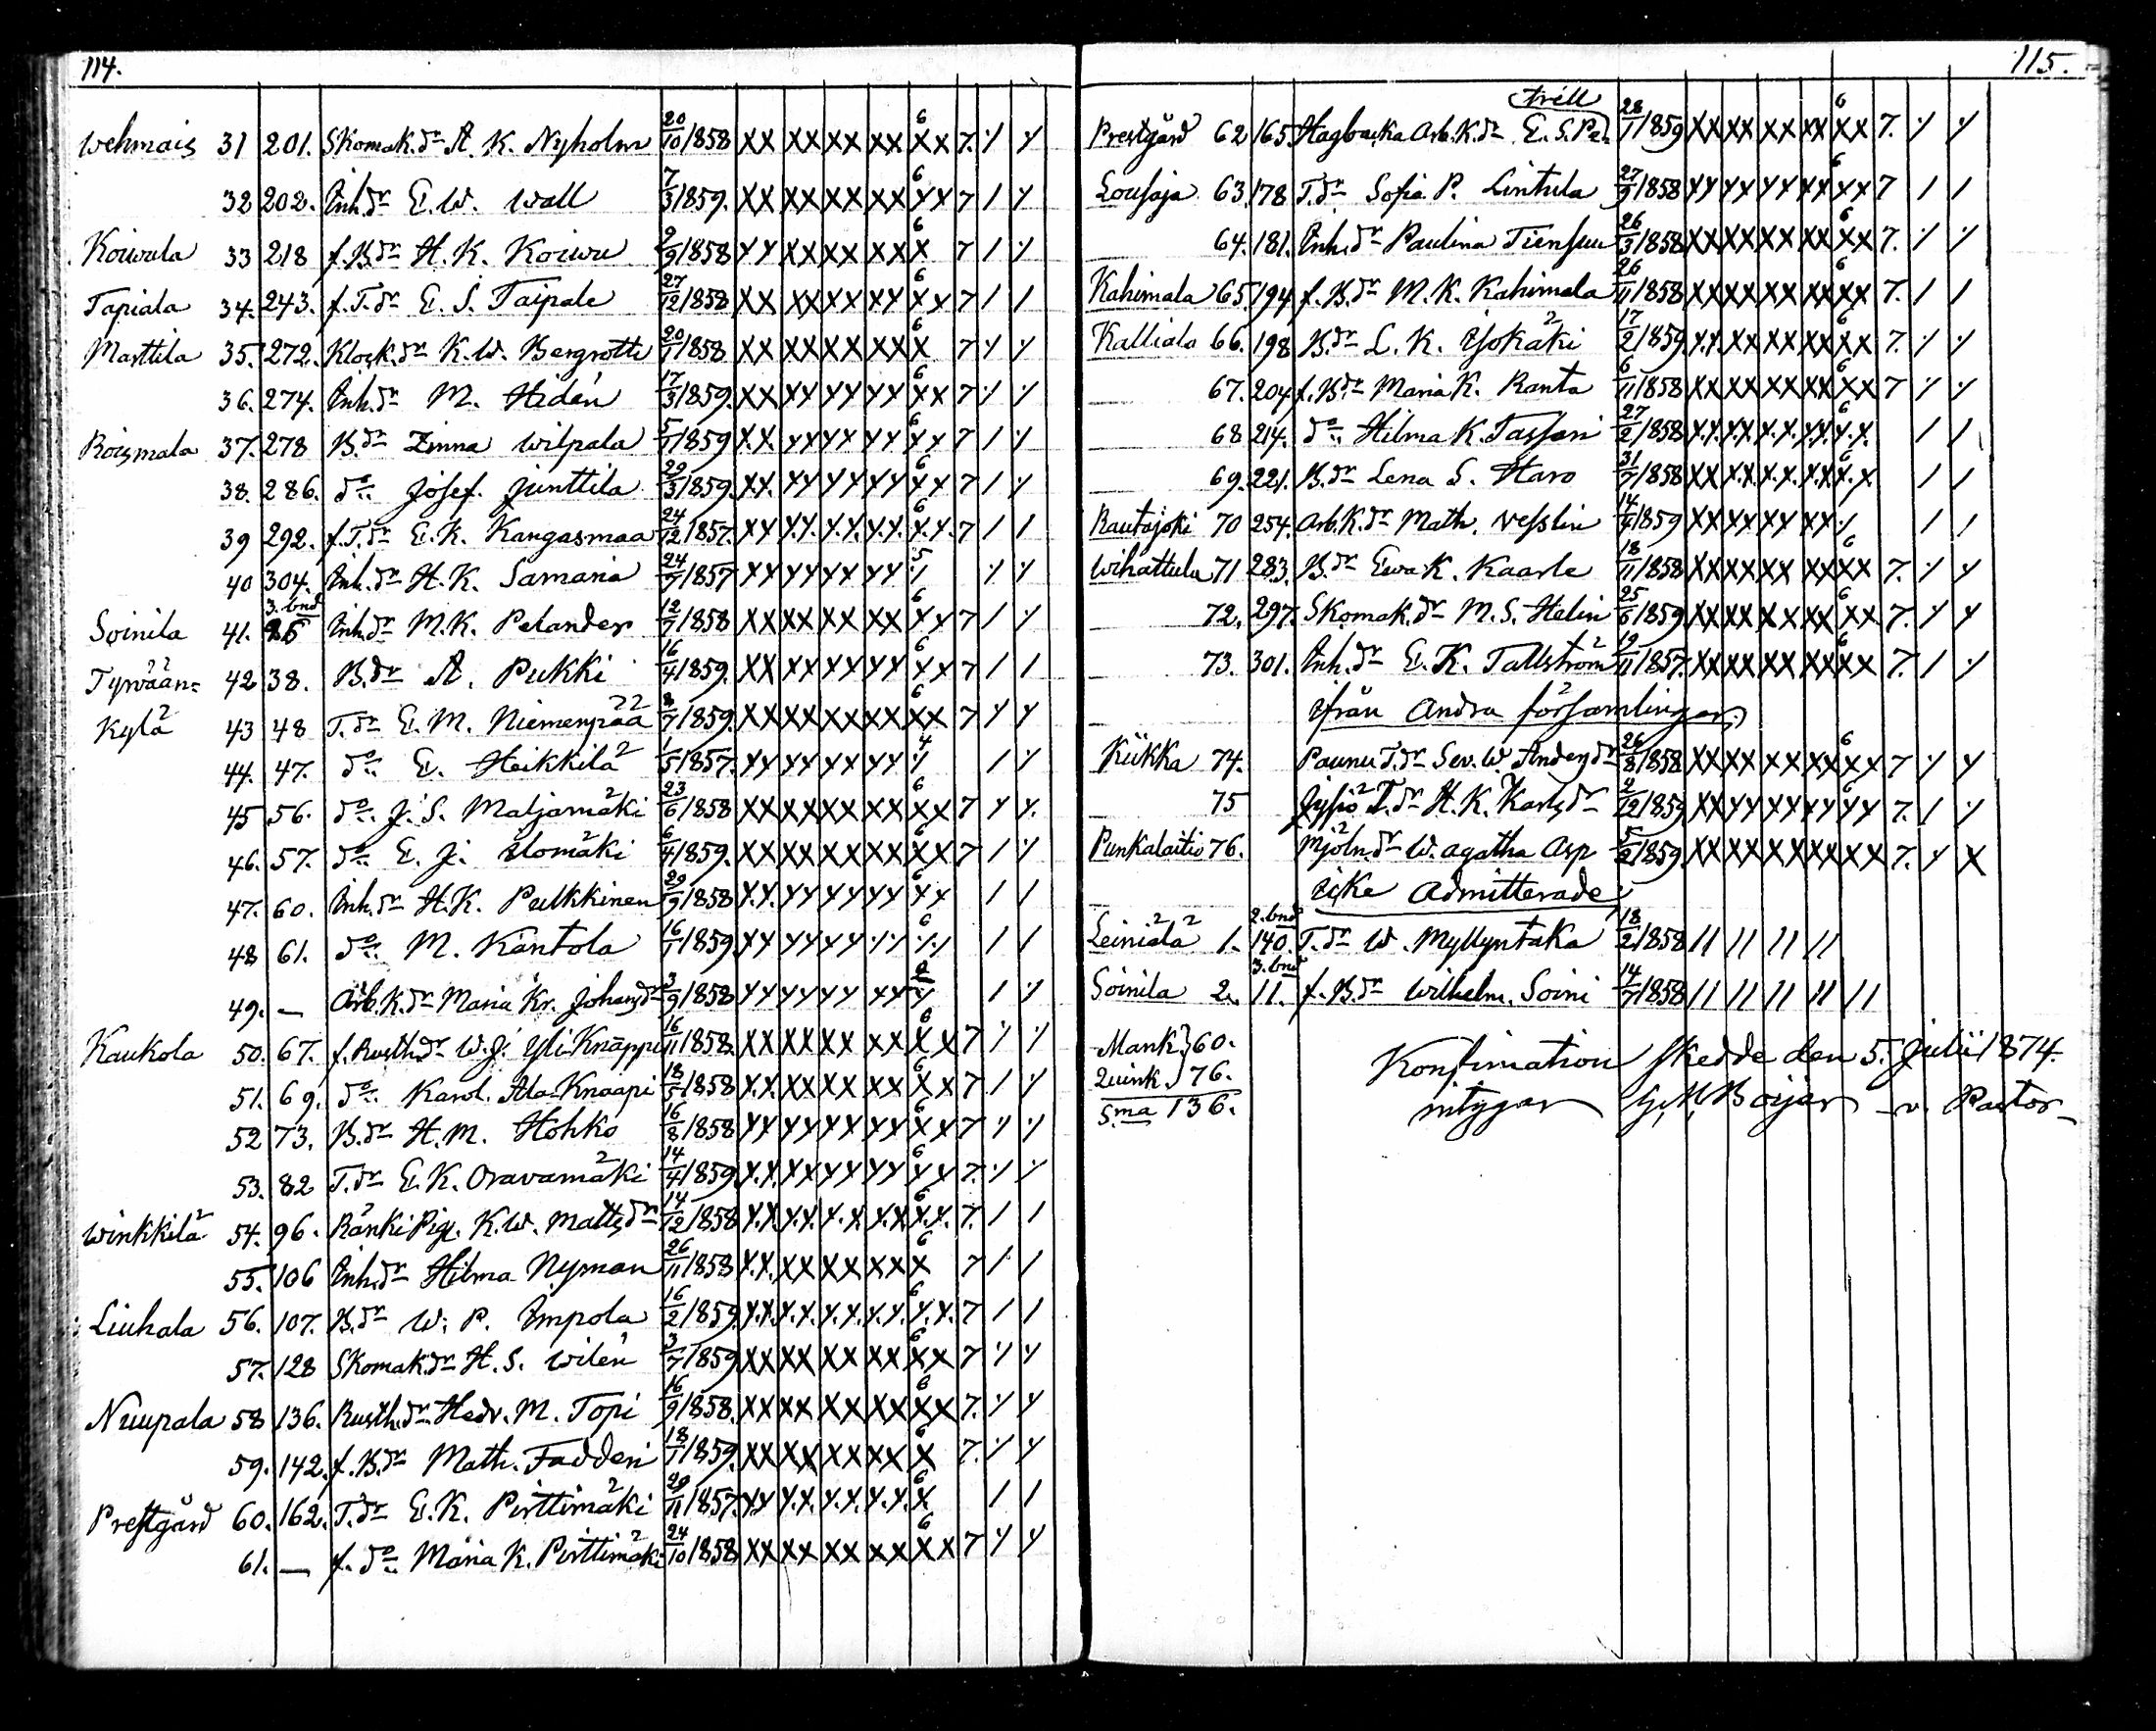 114.
Wehmais 31 201. Skomak.dr A. K. Nyholm 20/10 1858 XX XX XX XX 6 XX 7. ⁒ ⁒
32 202. Inh.dr E. W. Wall 7/3 1859. XX XX XX XX 6 XX 7 / ⁒
Koiwula 33 218 f.B.dr H. K. Koiwu 2/9 1858 XX XX XX XX 6 X 7 / ⁒
Tapiala 34. 243. f.T.dr E. S. Taipale 27/12 1858 XX XX XX XX 6 XX 7 / /
Marttila 35. 272. Klock.dr K. W. Bergroth 20/1 1858 XX XX XX XX 6 X 7 ⁒ ⁒
36. 274. Inh.dr M. Hidén 17/3 1859. XX XX XX XX 6 XX 7 ⁒ ⁒
Roismala 37. 278 B.dr Zinna Wilpala 5/1 1859 XX. XX XX XX 6 XX 7 / ⁒
38. 286. do. Josef. Junttila 29/3 1859. XX. XX XX XX 6 XX 7 / ⁒
39 292. f.T.dr E. K. Kangasmaa 24/12 1857. XX X.X. X.X. X.X. 6 X.X. 7 / /
40 304. Inh.dr H. K. Samaria 24/7 1857 XX XX XX XX 5 ⁒ ⁒ ⁒
3. bnd
Soinila 41. 25 Inh.dr M. K. Pelander 12/7 1858 XX XX XX XX 6 XX 7 / ⁒
Tyrwään= 42 38. B.dr A. Pukki 16/4 1859. XX XX XX XX 6 XX 7 / /
Kylä 43 48 T.dr E. M. Niemenpää 8/7 1859. XX XX XX XX 6 XX 7 ⁒ ⁒
44. 47. do. E. Heikkilä 1/5 1857. XX XX XX XX 4 ⁒ / ⁒
45 56. do. J. S. Maljamäki 23/6 1858 XX XX XX XX 6 XX 7 ⁒ ⁒.
46. 57. do. E. J. Ilomäki 6/4 1859. XX XX XX XX 6 XX 7 / ⁒
47. 60. Inh.dr H. K. Pulkkinen 29/9 1858 X.X. XX XX XX 6 XX / /
48 61. do. M. Kantola 16/1 1859. XX XX XX ⁒⁒ 6 ⁒⁒ / /
49. — Arb.K.dr Maria Kr. Johansdr 3/9 1858 XX XX XX XX X / ⁒
Kaukola 50. 67. f. Rusth.dr W. J. Yli-Knappi 16/11 1858. XX XX XX XX 6 XX 7 ⁒ ⁒
51. 69. do. Karol. Ala-Knaapi 18/5 1858 XX XX XX XX 6 XX 7 / ⁒
52 73. B.dr H. M. Hohko 16/8 1858 XX XX XX XX 6 XX 7 ⁒ ⁒
53. 82 T.dr E. K. Oravamäki 14/4 1859. X.X. XX XX XX 6 XX 7. ⁒ ⁒
Winkkilä 54. 96. Ränki Pig. K. W. Mattsdr 14/12 1858 X.X. X.X. X.X. X.X. 6 X.X. 7. / /
55. 106 Inh.dr Hilma Nyman 26/11 1858 X.X. XX XX XX 6 X 7 / /
Liuhala 56. 107. B.dr W. P. Impola 16/2 1859. X.X. X.X. X.X. X.X. 6 X.X. 7 / /
57. 128 Skomak.dr H. S. Wilén 3/7 1859 XX XX XX XX 6 XX 7 ⁒ ⁒
Nuupala 58 136. Rusth.dr Hedv. M. Topi 16/9 1858. XX XX XX XX 6 XX 7. ⁒ ⁒
59. 142. f.B.dr Math. Fadderi 18/1 1859. XX XX XX XX 6 X 7. ⁒ ⁒
Prestgård 60. 162. T.dr E. K. Pirttimäki 29/11 1857. XX X.X. X.X. X.X. 6 X / /
61. — f. do. Maria K. Pirttimäki 24/10 1858 XX XX XX XX 6 XX 7 ⁒ ⁒
115.
trill
Prestgård 62 165. Hagbacka Arb.K.dr E. S. Pe 28/1 1859 XX XX XX XX 6 XX 7. ⁒ ⁒
Lousaja 63. 178 T.dr Sofia P. Lintula 27/9 1858 XX XX XX XX 6 XX 7 / /
64. 181. Inh.dr Paulina Tiensuu 26/3 1858 XX XX XX XX 6 XX 7. ⁒ ⁒
Kahimala 65. 194 f.B.dr M. K. Kahimala 26/11 1858 XX XX XX XX 6 XX 7. / /
Kalliala 66. 198 B.dr L. K. Isokäki 17/2 1859 X.X. XX XX XX 6 XX 7. ⁒ ⁒
67. 204 f.B.dr Maria K. Ranta 6/11 1858 XX XX XX XX 6 XX 7 ⁒ ⁒
68 214. do. Hilma K. Tasseri 27/2 1858 X.X. X.X. X.X. X.X. 6 X.X. / /
69. 221. B.dr Lena S. Haro 31/7 1858 XX X.X. X.X. X.X. 6 X.X / /
Rautajoki 70 254. Arb.K.dr Math. Vesslin 14/4 1859 XX XX XX XX ⁒ / /
Wihattula 71 283. B.dr Ewa K. Kaarle 18/11 1858 XX XX XX XX 6 XX 7. ⁒ ⁒
72. 297. Skomak.dr M. S. Helin 25/6 1859 XX XX XX XX 6 XX 7. ⁒ ⁒
73. 301. Inh.dr E. K. Tallström 19/11 1857. XX XX XX XX 6 XX 7. / ⁒
Ifrån Andra församlingar
Kiikka 74. Paunu T.dr Sev. W. Andersdr 26/8 1858 XX XX XX XX 6 XX 7 ⁒ ⁒
75 Jypiö T.dr H. K. Karlsdr 2/12 1859 XX XX XX XX 6 XX 7. / ⁒
Punkalaitio 76. Mjöln.dr W. Agatha Asp 5/2 1859. XX XX XX XX XX 7. ⁒ X
Icke Admitterade
2. bnd
Leiniälä 1. 140. T.dr W. Myllyntaka 18/2 1858 // // // //
3. bnd
Soinila 2. 11. f.B.dr Wilhelm. Soini 14/7 1858 // // // // //
Mank. } 60.
Quink. } 76.
Sma 136.
Konfirmation skedde den 5. Julii 1874.
intygar G. M. Boijer v. Pastor